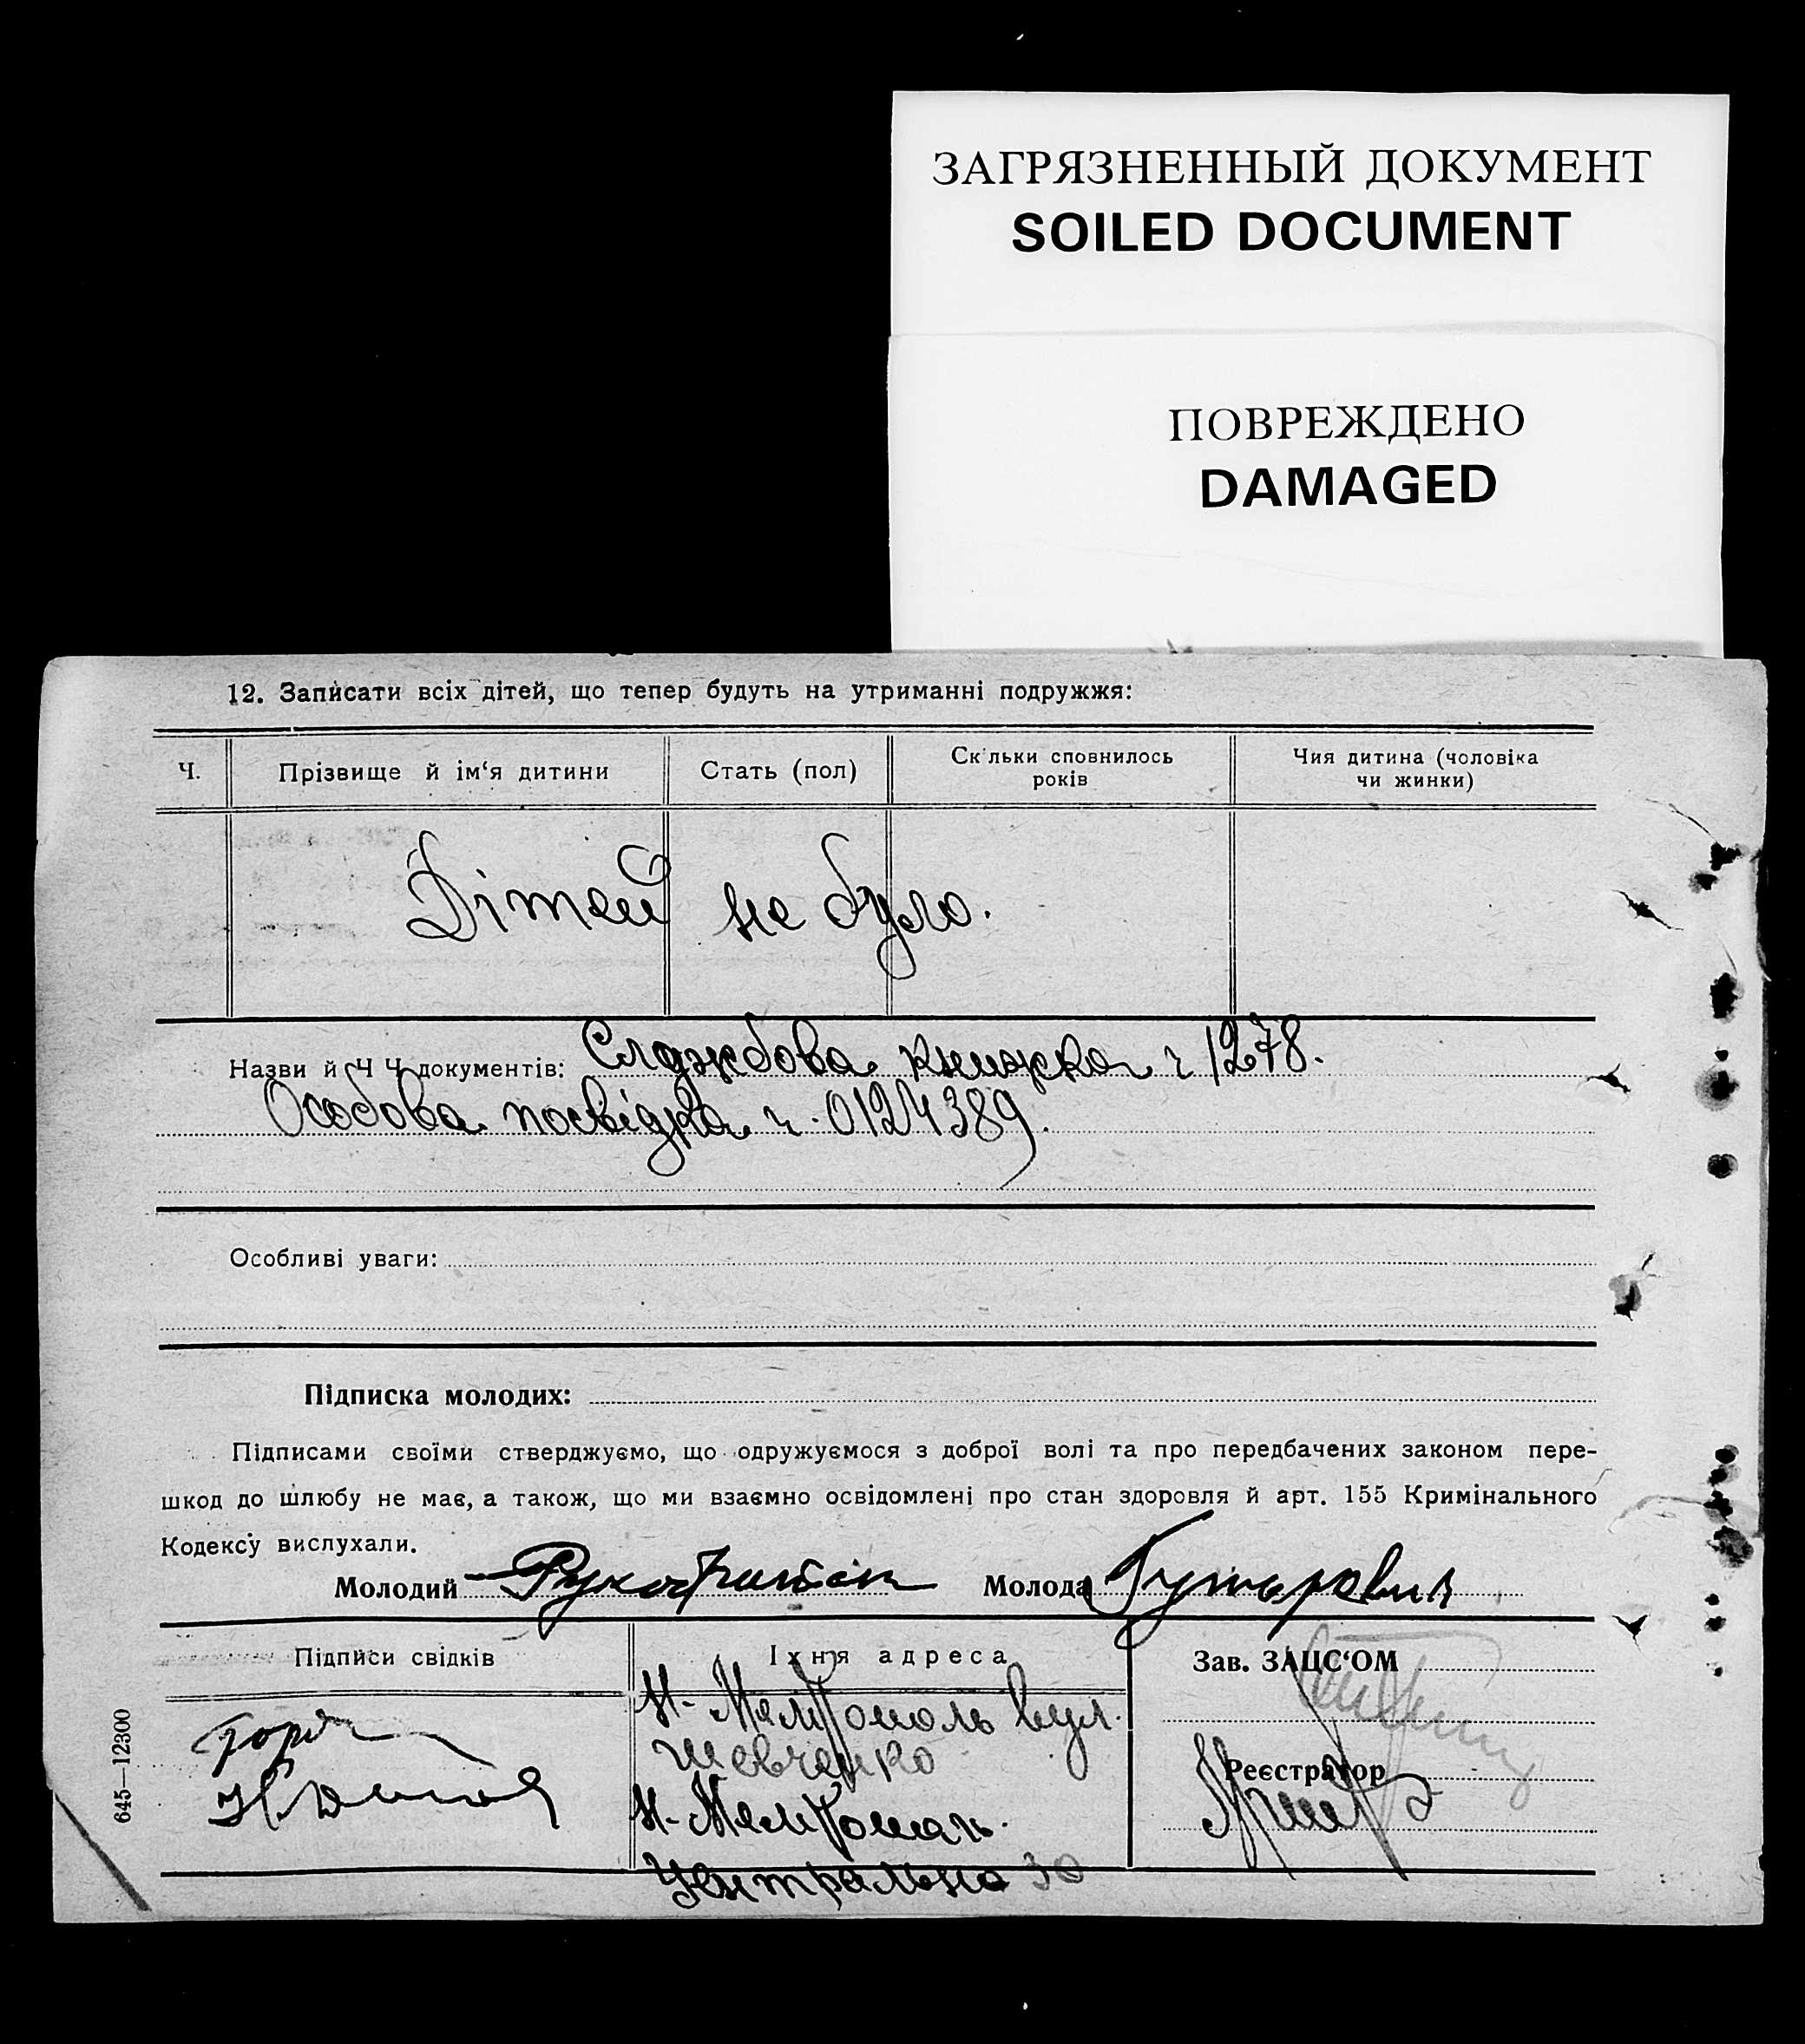 ЗАГРЯЗНЕННЫЙ ДОКУМЕНТ
SOILED DOCUMENT
ПОВРЕЖДЕНО
DAMAGED
12. Записати всіх дітей, що тепер будуть на утриманні подружжя:
Ч. Прізвище й ім‘я дитини Стать (пол) Скільки сповнилось років Чия дитина (чоловіка чи жинки)
Дітей не було.
Назви й Ч Ч документів: Службова книжка ч 1278.
Особова посвідка ч. 0124389.
Особливі уваги:
Підписка молодих:
Підписами своїми стверджуємо, що одружуємося з доброї волі та про передбачених законом пере-
шкод до шлюбу не має, а також, що ми взаємно освідомлені про стан здоровля й арт. 155 Кримінального
Кодексу вислухали.
Молодий Молода
Підписи свідків Їхня адреса Зав. ЗАЦС‘ОМ
Н-Мелітополь вул.
Шевченко
Реєстратор
Н-Мелітополь.
Центральна 30
645—12300